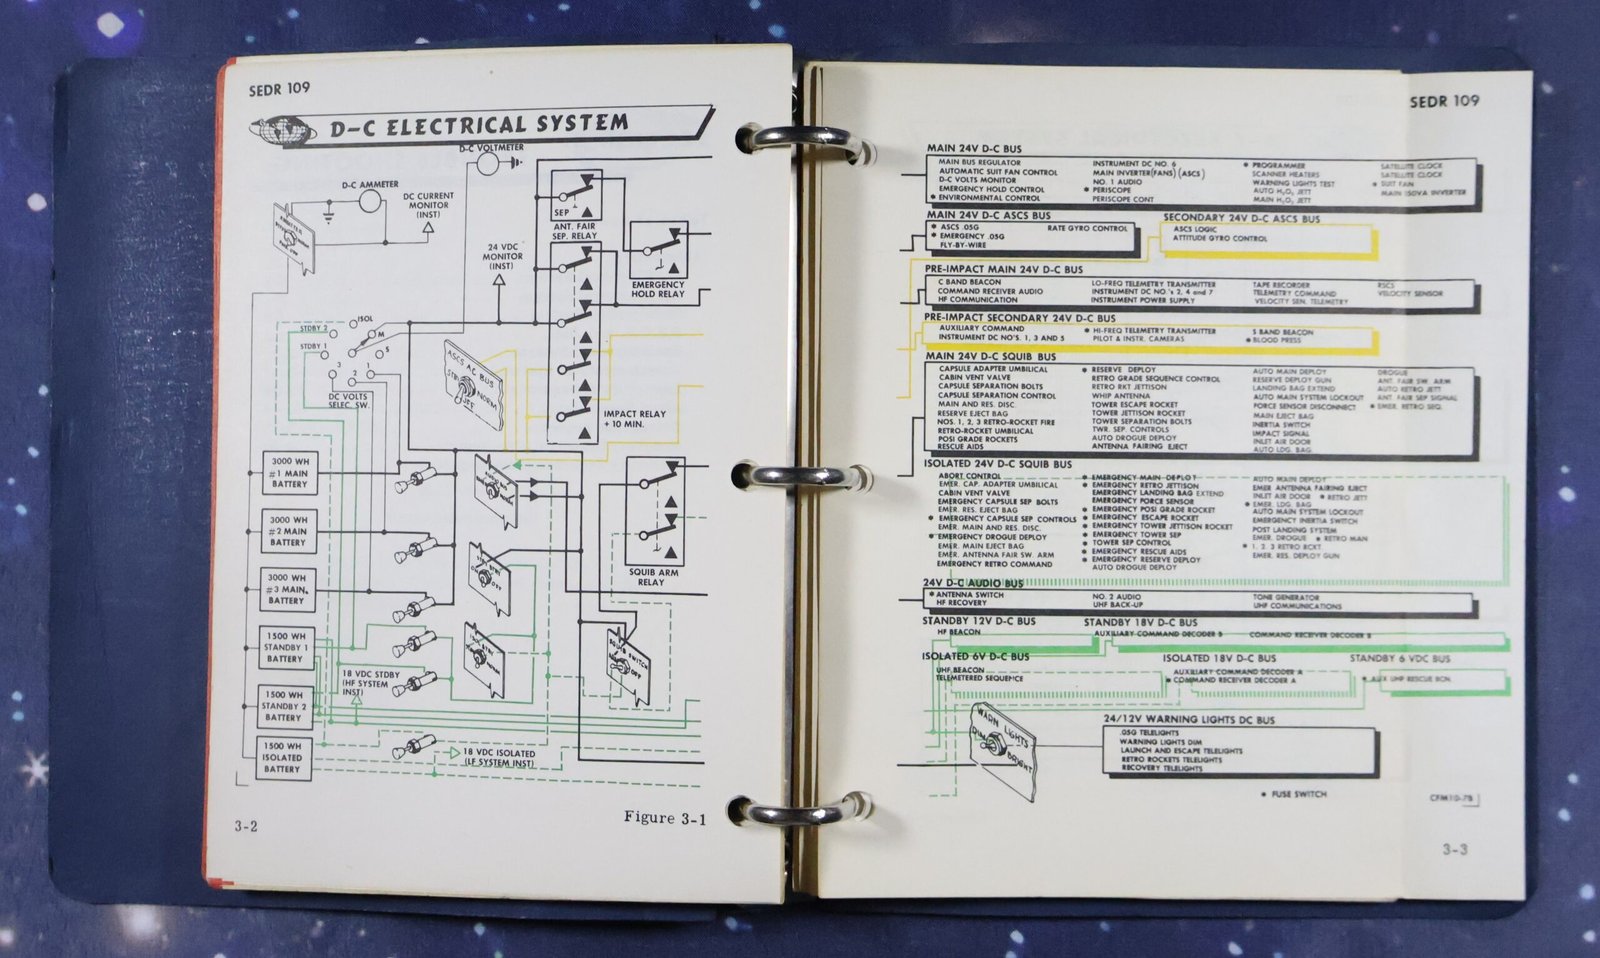 SEDR 109
D-C ELECTRICAL SYSTEM
D-C VOLTMETER
D-C AMMETER
DC CURRENT
MONITOR
(INST)
SEP
ANT. FAIR
SEP. RELAY
24 VDC
MONITOR
(INST)
EMERGENCY
HOLD RELAY
ISOL
STDBY 2
M
STDBY 1
S
3
2
1
DC VOLTS
SELEC. SW.
ASCS AC BUS
STBY
NORM
OFF
IMPACT RELAY
+ 10 MIN.
3000 WH
#1 MAIN
BATTERY
3000 WH
#2 MAIN
BATTERY
3000 WH
#3 MAIN
BATTERY
SQUIB ARM
RELAY
1500 WH
STANDBY 1
BATTERY
SQUIB SWITCH
OFF
18 VDC STDBY
(HF SYSTEM
INST)
1500 WH
STANDBY 2
BATTERY
1500 WH
ISOLATED
BATTERY
18 VDC ISOLATED
(LF SYSTEM INST)
3-2
Figure 3-1
SEDR 109
MAIN 24V D-C BUS
MAIN BUS REGULATOR INSTRUMENT DC NO. 6 * PROGRAMMER SATELLITE CLOCK
AUTOMATIC SUIT FAN CONTROL MAIN INVERTER(FANS) (ASCS) SCANNER HEATERS SATELLITE CLOCK
D-C VOLTS MONITOR NO. 1 AUDIO WARNING LIGHTS TEST * SUIT FAN
EMERGENCY HOLD CONTROL * PERISCOPE AUTO H₂O₂ JETT MAIN 150VA INVERTER
* ENVIRONMENTAL CONTROL PERISCOPE CONT MAIN H₂O₂ JETT
MAIN 24V D-C ASCS BUS SECONDARY 24V D-C ASCS BUS
* ASCS .05G RATE GYRO CONTROL ASCS LOGIC
* EMERGENCY .05G ATTITUDE GYRO CONTROL
FLY-BY-WIRE
PRE-IMPACT MAIN 24V D-C BUS
C BAND BEACON LO-FREQ TELEMETRY TRANSMITTER TAPE RECORDER RSCS
COMMAND RECEIVER AUDIO INSTRUMENT DC NO.'s 2, 4 and 7 TELEMETRY COMMAND VELOCITY SENSOR
HF COMMUNICATION INSTRUMENT POWER SUPPLY VELOCITY SEN. TELEMETRY
PRE-IMPACT SECONDARY 24V D-C BUS
AUXILIARY COMMAND * HI-FREQ TELEMETRY TRANSMITTER S BAND BEACON
INSTRUMENT DC NO'S. 1, 3 AND 5 PILOT & INSTR. CAMERAS * BLOOD PRESS
MAIN 24V D-C SQUIB BUS
CAPSULE ADAPTER UMBILICAL * RESERVE DEPLOY AUTO MAIN DEPLOY DROGUE
CABIN VENT VALVE RETRO GRADE SEQUENCE CONTROL RESERVE DEPLOY GUN ANT. FAIR SW. ARM
CAPSULE SEPARATION BOLTS RETRO RKT JETTISON LANDING BAG EXTEND AUTO RETRO JETT
CAPSULE SEPARATION CONTROL WHIP ANTENNA AUTO MAIN SYSTEM LOCKOUT ANT FAIR SEP SIGNAL
MAIN AND RES. DISC. TOWER ESCAPE ROCKET FORCE SENSOR DISCONNECT * EMER. RETRO SEQ.
RESERVE EJECT BAG TOWER JETTISON ROCKET MAIN EJECT BAG
NOS. 1, 2, 3 RETRO-ROCKET FIRE TOWER SEPARATION BOLTS INERTIA SWITCH
RETRO-ROCKET UMBILICAL TWR. SEP. CONTROLS IMPACT SIGNAL
POSI GRADE ROCKETS AUTO DROGUE DEPLOY INLET AIR DOOR
RESCUE AIDS ANTENNA FAIRING EJECT AUTO LDG. BAG
ISOLATED 24V D-C SQUIB BUS
ABORT CONTROL * EMERGENCY MAIN DEPLOY AUTO MAIN DEPLOY
EMER. CAP. ADAPTER UMBILICAL * EMERGENCY RETRO JETTISON EMER ANTENNA FAIRING EJECT
CABIN VENT VALVE EMERGENCY LANDING BAG EXTEND INLET AIR DOOR * RETRO JETT
EMERGENCY CAPSULE SEP BOLTS EMERGENCY FORCE SENSOR * EMER. LDG. BAG
EMER. RES. EJECT BAG * EMERGENCY POSI GRADE ROCKET AUTO MAIN SYSTEM LOCKOUT
* EMERGENCY CAPSULE SEP CONTROLS * EMERGENCY ESCAPE ROCKET EMERGENCY INERTIA SWITCH
EMER. MAIN AND RES. DISC. * EMERGENCY TOWER JETTISON ROCKET POST LANDING SYSTEM
* EMERGENCY DROGUE DEPLOY * EMERGENCY TOWER SEP EMER. DROGUE * RETRO MAN
EMER. MAIN EJECT BAG * TOWER SEP CONTROL * 1. 2. 3 RETRO RCKT.
EMER. ANTENNA FAIR SW. ARM * EMERGENCY RESCUE AIDS EMER. RES. DEPLOY GUN
EMERGENCY RETRO COMMAND * EMERGENCY RESERVE DEPLOY
AUTO DROGUE DEPLOY
24V D-C AUDIO BUS
* ANTENNA SWITCH NO. 2 AUDIO TONE GENERATOR
HF RECOVERY UHF BACK-UP UHF COMMUNICATIONS
STANDBY 12V D-C BUS STANDBY 18V D-C BUS
HF BEACON AUXILIARY COMMAND DECODER B COMMAND RECEIVER DECODER B
ISOLATED 6V D-C BUS ISOLATED 18V D-C BUS STANDBY 6 VDC BUS
UHF BEACON AUXILIARY COMMAND DECODER A * AUX UHF RESCUE BCN.
TELEMETERED SEQUENCE * COMMAND RECEIVER DECODER A
WARN LIGHTS
DIM
BRIGHT
24/12V WARNING LIGHTS DC BUS
.05G TELELIGHTS
WARNING LIGHTS DIM
LAUNCH AND ESCAPE TELELIGHTS
RETRO ROCKETS TELELIGHTS
RECOVERY TELELIGHTS
* FUSE SWITCH
CFM1D-7B
3-3